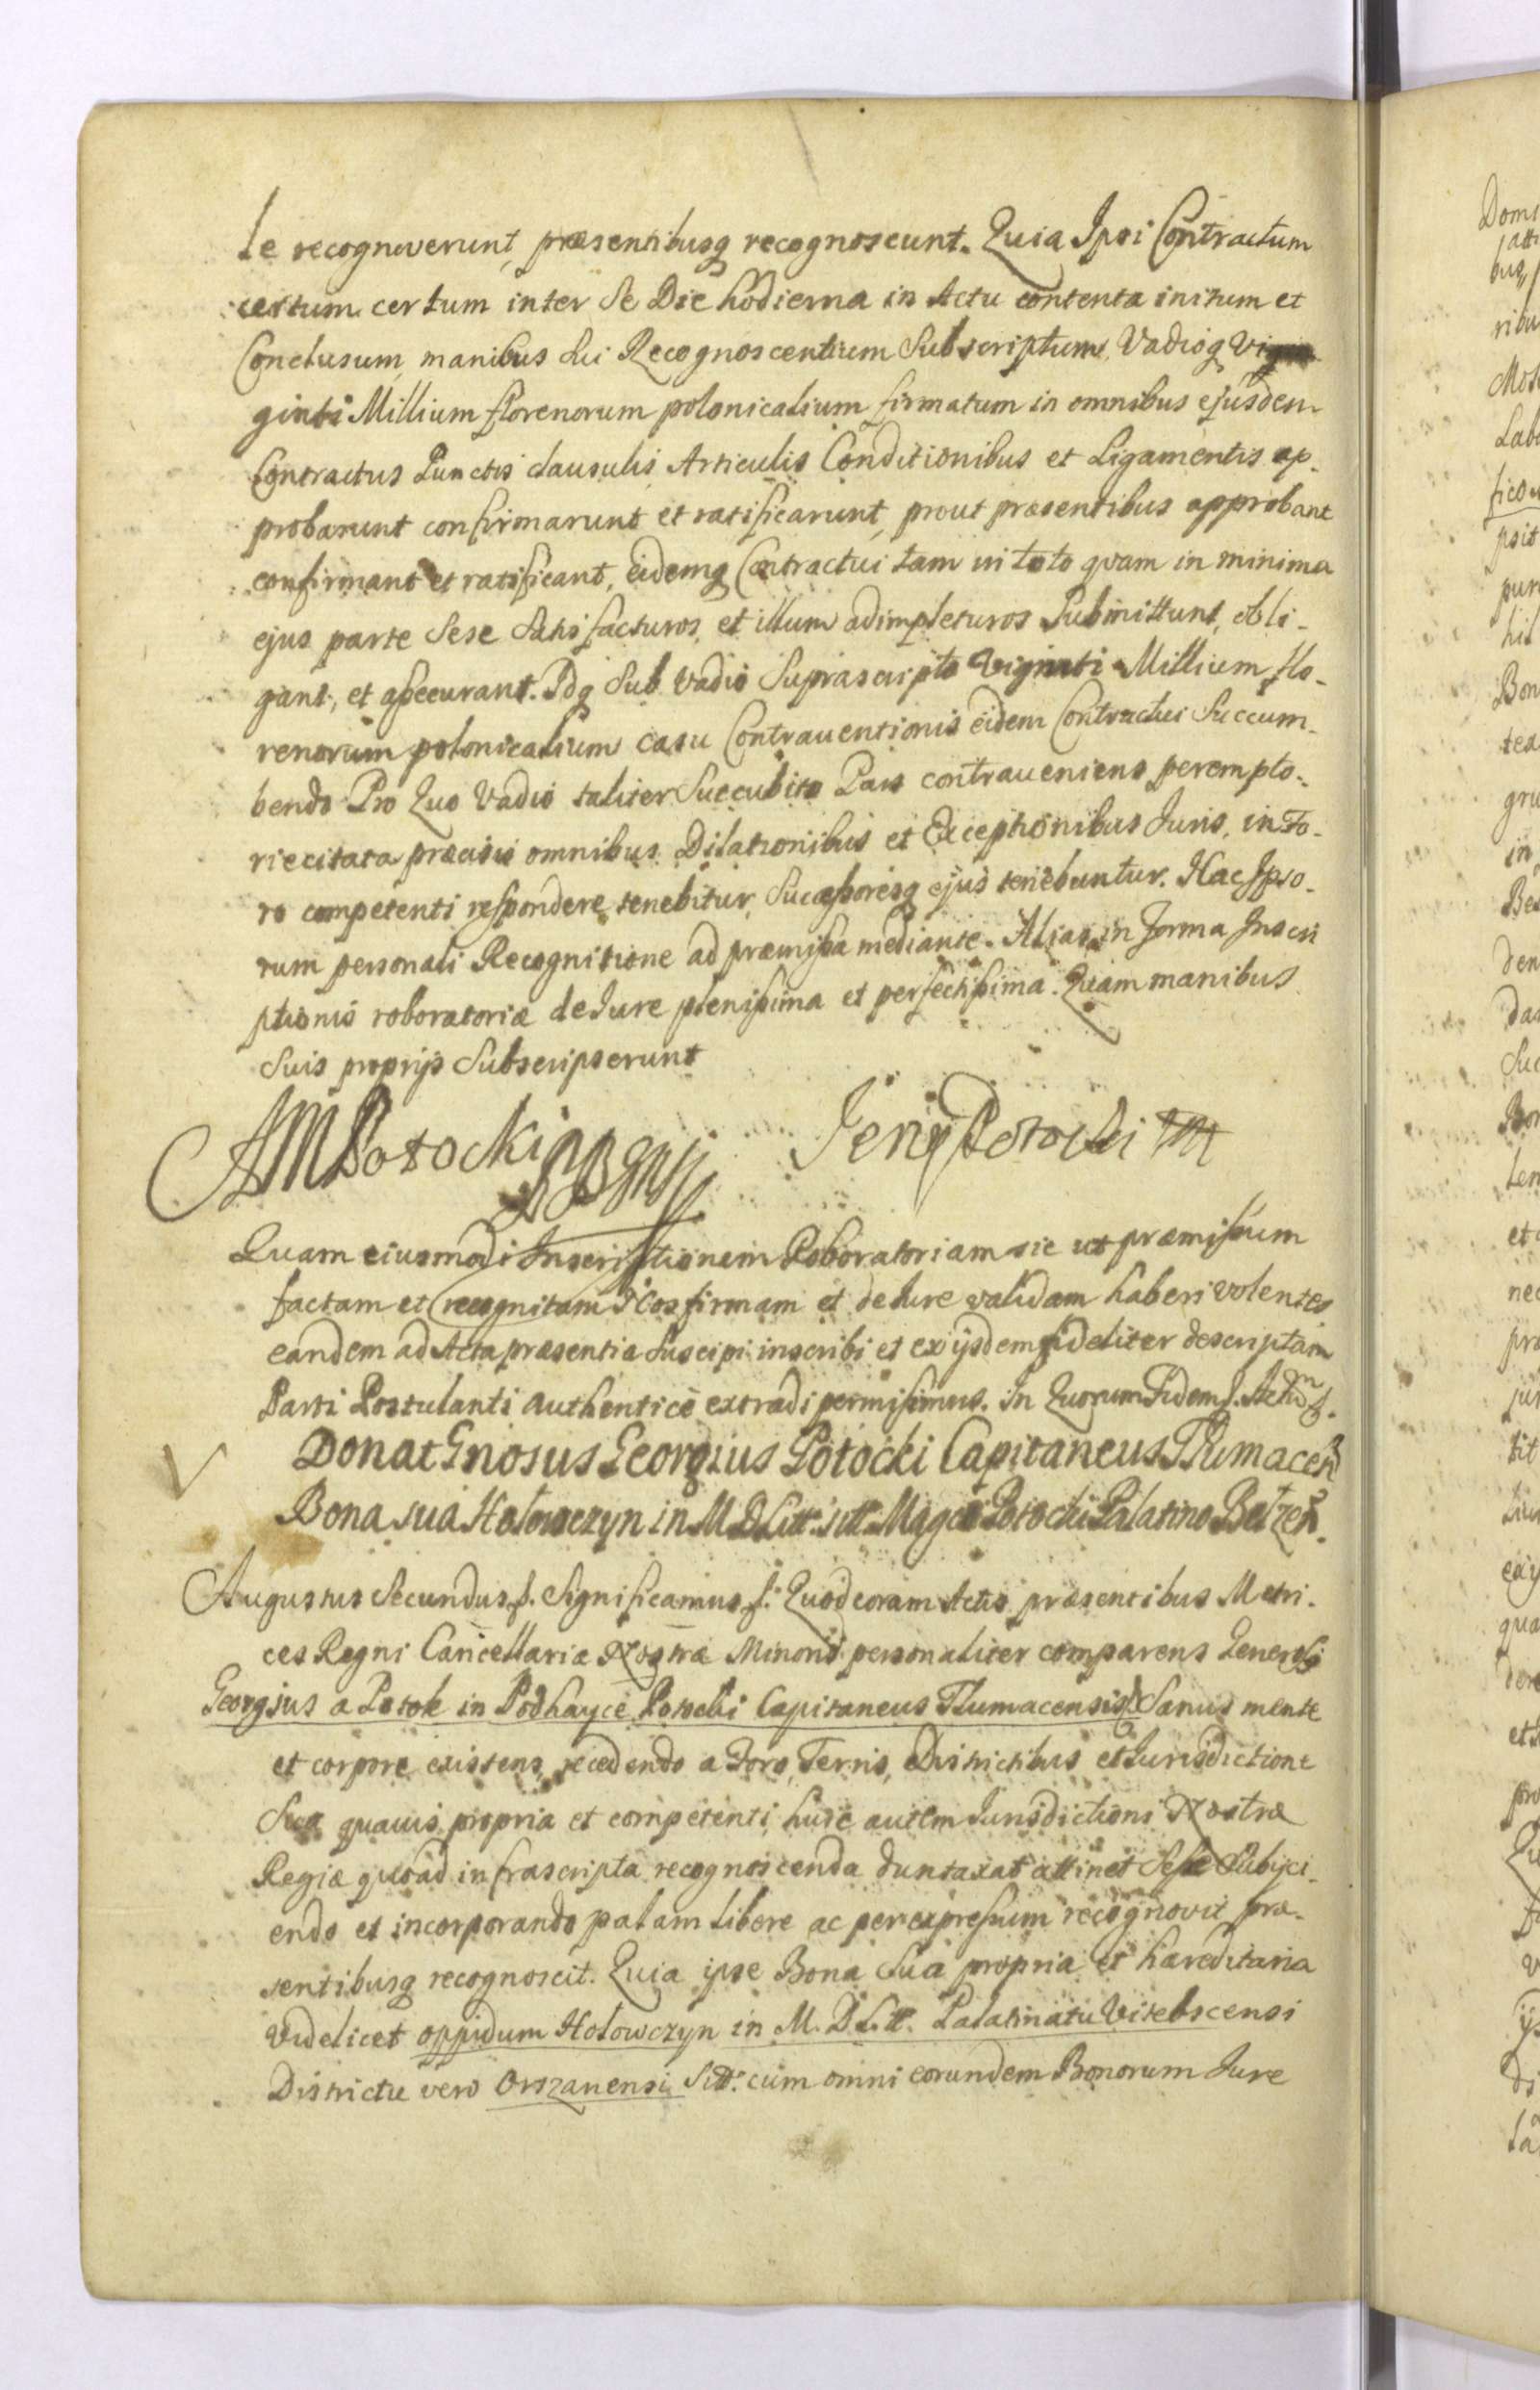 le recognoverunt, præsentibusq recognoscunt. Quia Ipsi Contractum
certum certum inter Se Die hodierna in Actu contenta initum et
Conclusum, manibus Sui Recognoscentium Subscriptum, Vadioq Vi
ginti Millium florenorum polonicalium firmatum in omnibus ejusdem
Contractus Punctis clausulis Articulis Conditionibus et Ligamentis ap-
probarunt confirmarunt et ratificarunt, prout præsentibus approbant
confirmant et ratificant, eidemq Contractui tam in toto qvam in minima
ejus parte Sese Satisfacturos, et illum adimpleturos Submittunt, obli-
gant, et assecurant. Idq Sub vadio Suprascripto Viginti Millium flo-
renorum polonicalium casu Contrauentionis eidem Contractui Succum-
bendo Pro Quo Vadio taliter Succubito Pars contraueniens perempto-
rie citata præcisis omnibus Dilationibus et Exceptionibus Iuris, in Fo-
ro competenti respondere tenebitur, Successoresq ejus tenebuntur. Hac Ipso-
rum personali Recognitione ad præmissa mediante. Alias in forma Inscri
ptionis roboratoriæ de Iure plenissima et perfectissima. Quam manibus
Suis proprijs Subscripserunt
AMPotocki Jerzy Potocki
Quam eiusmodi Inscriptionem Roboratoriam sic ut præmissum
factam et recognitam Nos firmam et de Iure validam haberi volentes
eandem ad Acta præsentia Suscipi inscribi et ex ijsdem fideliter descriptam
Parti Postulanti authenticè extradi permisimus. In Quorum Fidem
Donat Gnosus Georgius Potocki Capitaneus Tlumaceñ
Bona sua Holowczyn in M D Litt. sitt. Mgco Potocki Palatino Belzeñ.
Augustus Secundus Significamus Quod coram Actis præsentibus Metri-
ces Regni Cancellariæ Nostræ Minoris personaliter comparens Generosus
Georgius a Potok in Podhayce Potocki Capitaneus Tlumacensis Sanus mente
et corpore existens, recedendo a Foro, Terris, Districtibus et Iurisdictione
Sua quauis propria et competenti, huic autem Iurisdictioni Nostræ
Regiæ quoad infrascripta recognoscenda duntaxat attinet Sese Subijci-
endo et incorporando palam libere ac per expressum recognovit præ-
sentibusq recognoscit. Quia ipse Bona Sua propria et hæreditaria
Videlicet oppidum Holowczyn in M. D. Litt. Palatinatu Vitebscensi
Districtu vero Orszanensi Sitt. cum omni eorundem Bonorum Iure